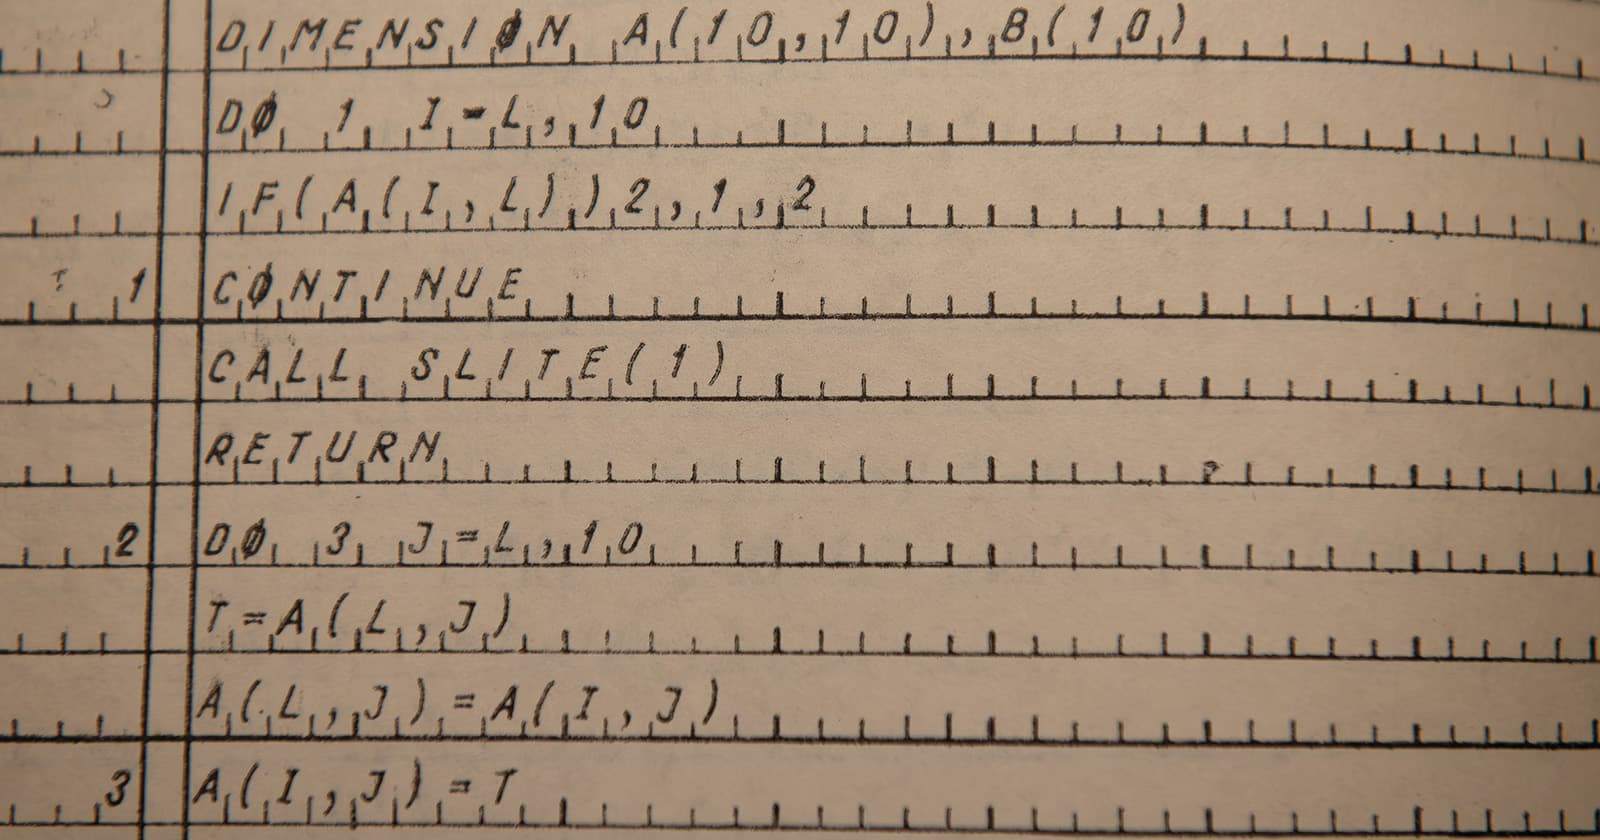 DIMENSIØN A(10,10),B(10)
DØ 1 I=L,10
IF(A(I,L))2,1,2
1 CØNTINUE
CALL SLITE(1)
RETURN
2 DØ 3 J=L,10
T=A(L,J)
A(L,J)=A(I,J)
3 A(I,J)=T